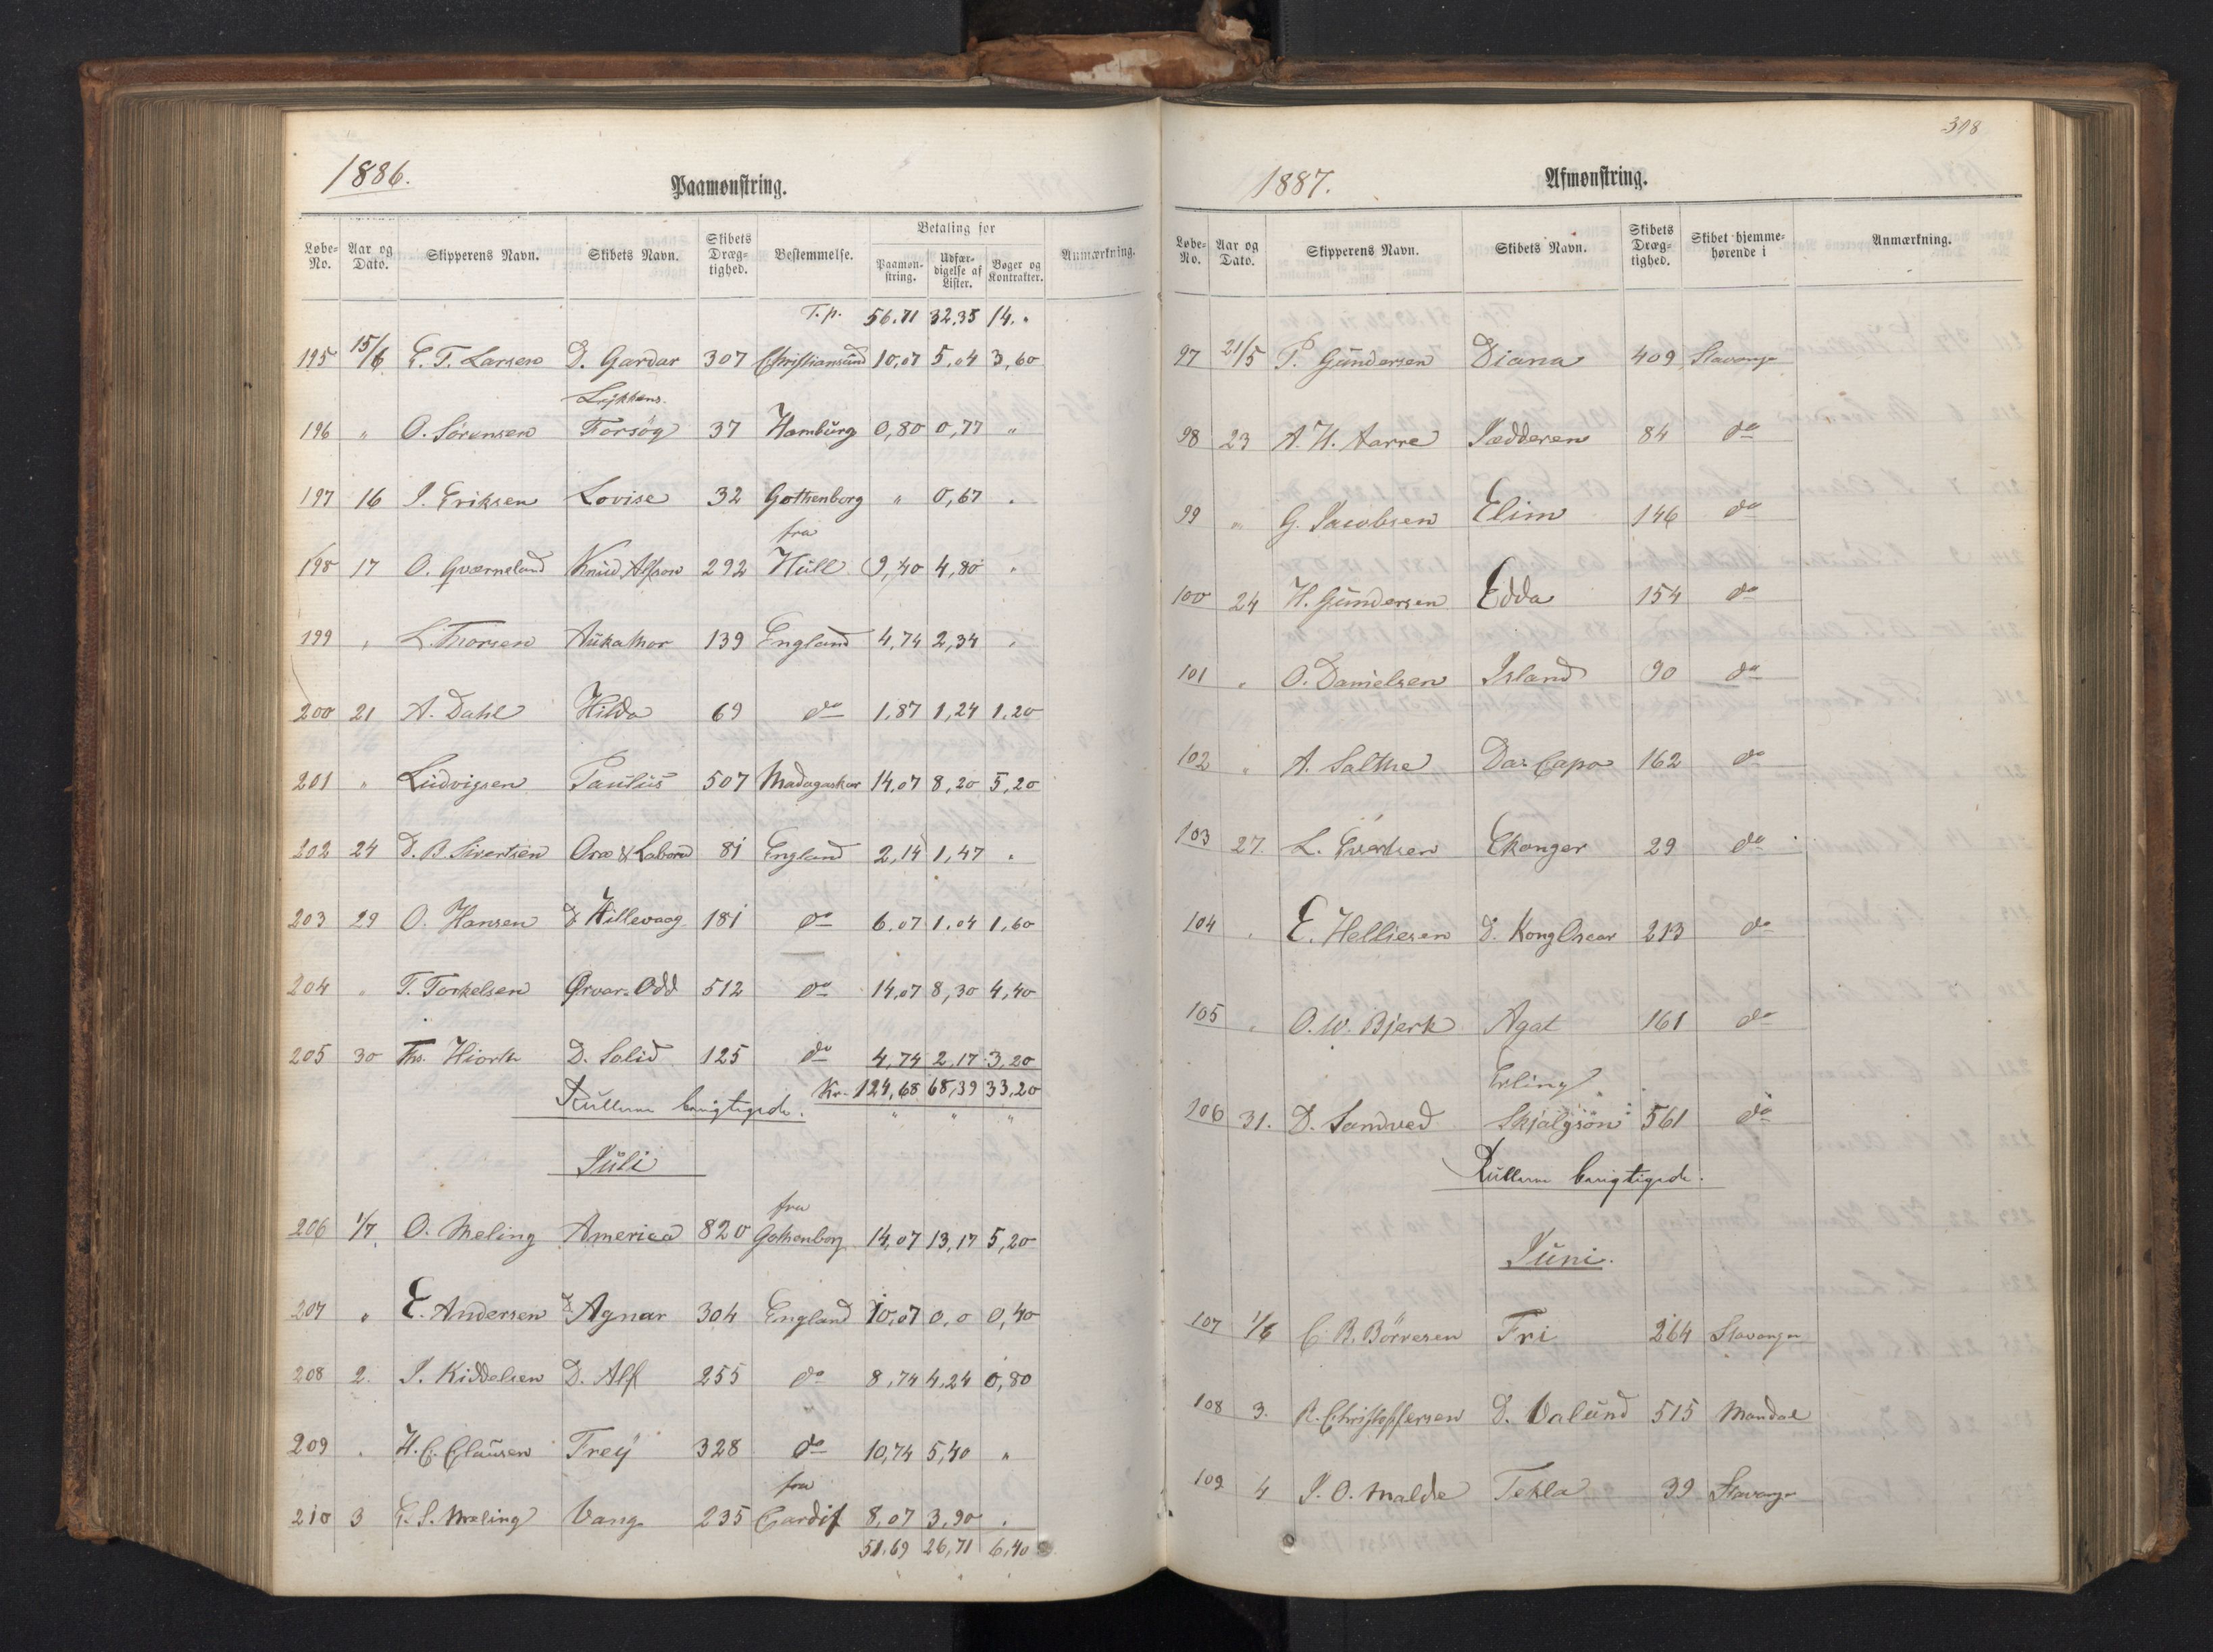 1886.
Paamønstring.
Løbe-No. Aar og Dato. Skipperens Navn. Skibets Navn. Skibets Dræg-tighed. Bestemmelse. Betaling for Anmærkning.
Paamøn-string. Udfær-digelse af Lister. Bøger og Kontrakter.
T.p. 56.71 32.35 14.„
195 15/6 E. T. Larsen D. Gardar 307 Christiansund 10,07 5,04 3,60
Lykkens
196 „ O. Sörensen Forsög 37 Hamburg 0,80 0,77 „
197 16 J. Eriksen Lovise 32 Gothenborg „ 0,67 „
fra
198 17 O. Qværneland Knud Alfson 292 Hull 9,40 4,80 „
199 „ L. Thorsen Aukathor 139 England 4,74 2,34 „
200 21 A. Dahl Hilda 69 do 1,87 1,24 1,20
201 „ Ludvigsen Paulus 507 Madagaskar 14,07 8,20 5,20
202 24 D. B. Sivertsen Ora & Labora 81 England 2,14 1,47 „
203 29 O. Hansen D Hillevaag 181 do 6,07 1,04 1,60
204 „ T. Torkelsen Ørvar-Odd 512 do 14,07 8,30 4,40
205 30 Ths. Hiorth D. Solid 125 do 4,74 2,17 3,20
Rullerne berigtigede. Kr. 124,68 68,39 33,20
Juli
fra
206 1/7 O. Meling America 820 Gothenborg 14,07 13,17 5,20
207 „ E. Andersen D Agnar 304 England 10,07 0,0 0,40
208 2. J. Kiddelsen D. Alf 255 do 8,74 4,24 0,80
209 „ H. C. Clausen Frey 328 do 10,74 5,40 „
fra
210 3 G. S. Meling Vang 235 Cardif 8,07 3,90 „
51,69 26,71 6,40
308
1887.
Afmønstring.
Løbe-No. Aar og Dato. Skipperens Navn. Skibets Navn. Skibets Dræg-tighed. Skibet hjemme-hørende i Anmærkning.
97 21/5 P. Gundersen Diana 409 Stavanger
98 23 A. H. Aarre Jædderen 84 do
99 „ G. Jacobsen Elim 146 do
100 24 H. Gundersen Edda 154 do
101 „ O. Danielsen Island 90 do
102 „ A. Salthe Da Capo 162 do
103 27. L. Evertsen Ekonger 29 do
104 „ E. Helliesen D. Kong Oscar 213 do
105 „ O. W. Bjerk Agat 161 do
Erling
106 31. D. Sandved Skjalgsön 561 do
Rullerne berigtigede.
Juni.
107 1/6 C. B. Börresen Fri 264 Stavanger
108 3. R. Christoffersen D. Valund 515 Mandal
109 4 J. O. Malde Tekla 39 Stavanger